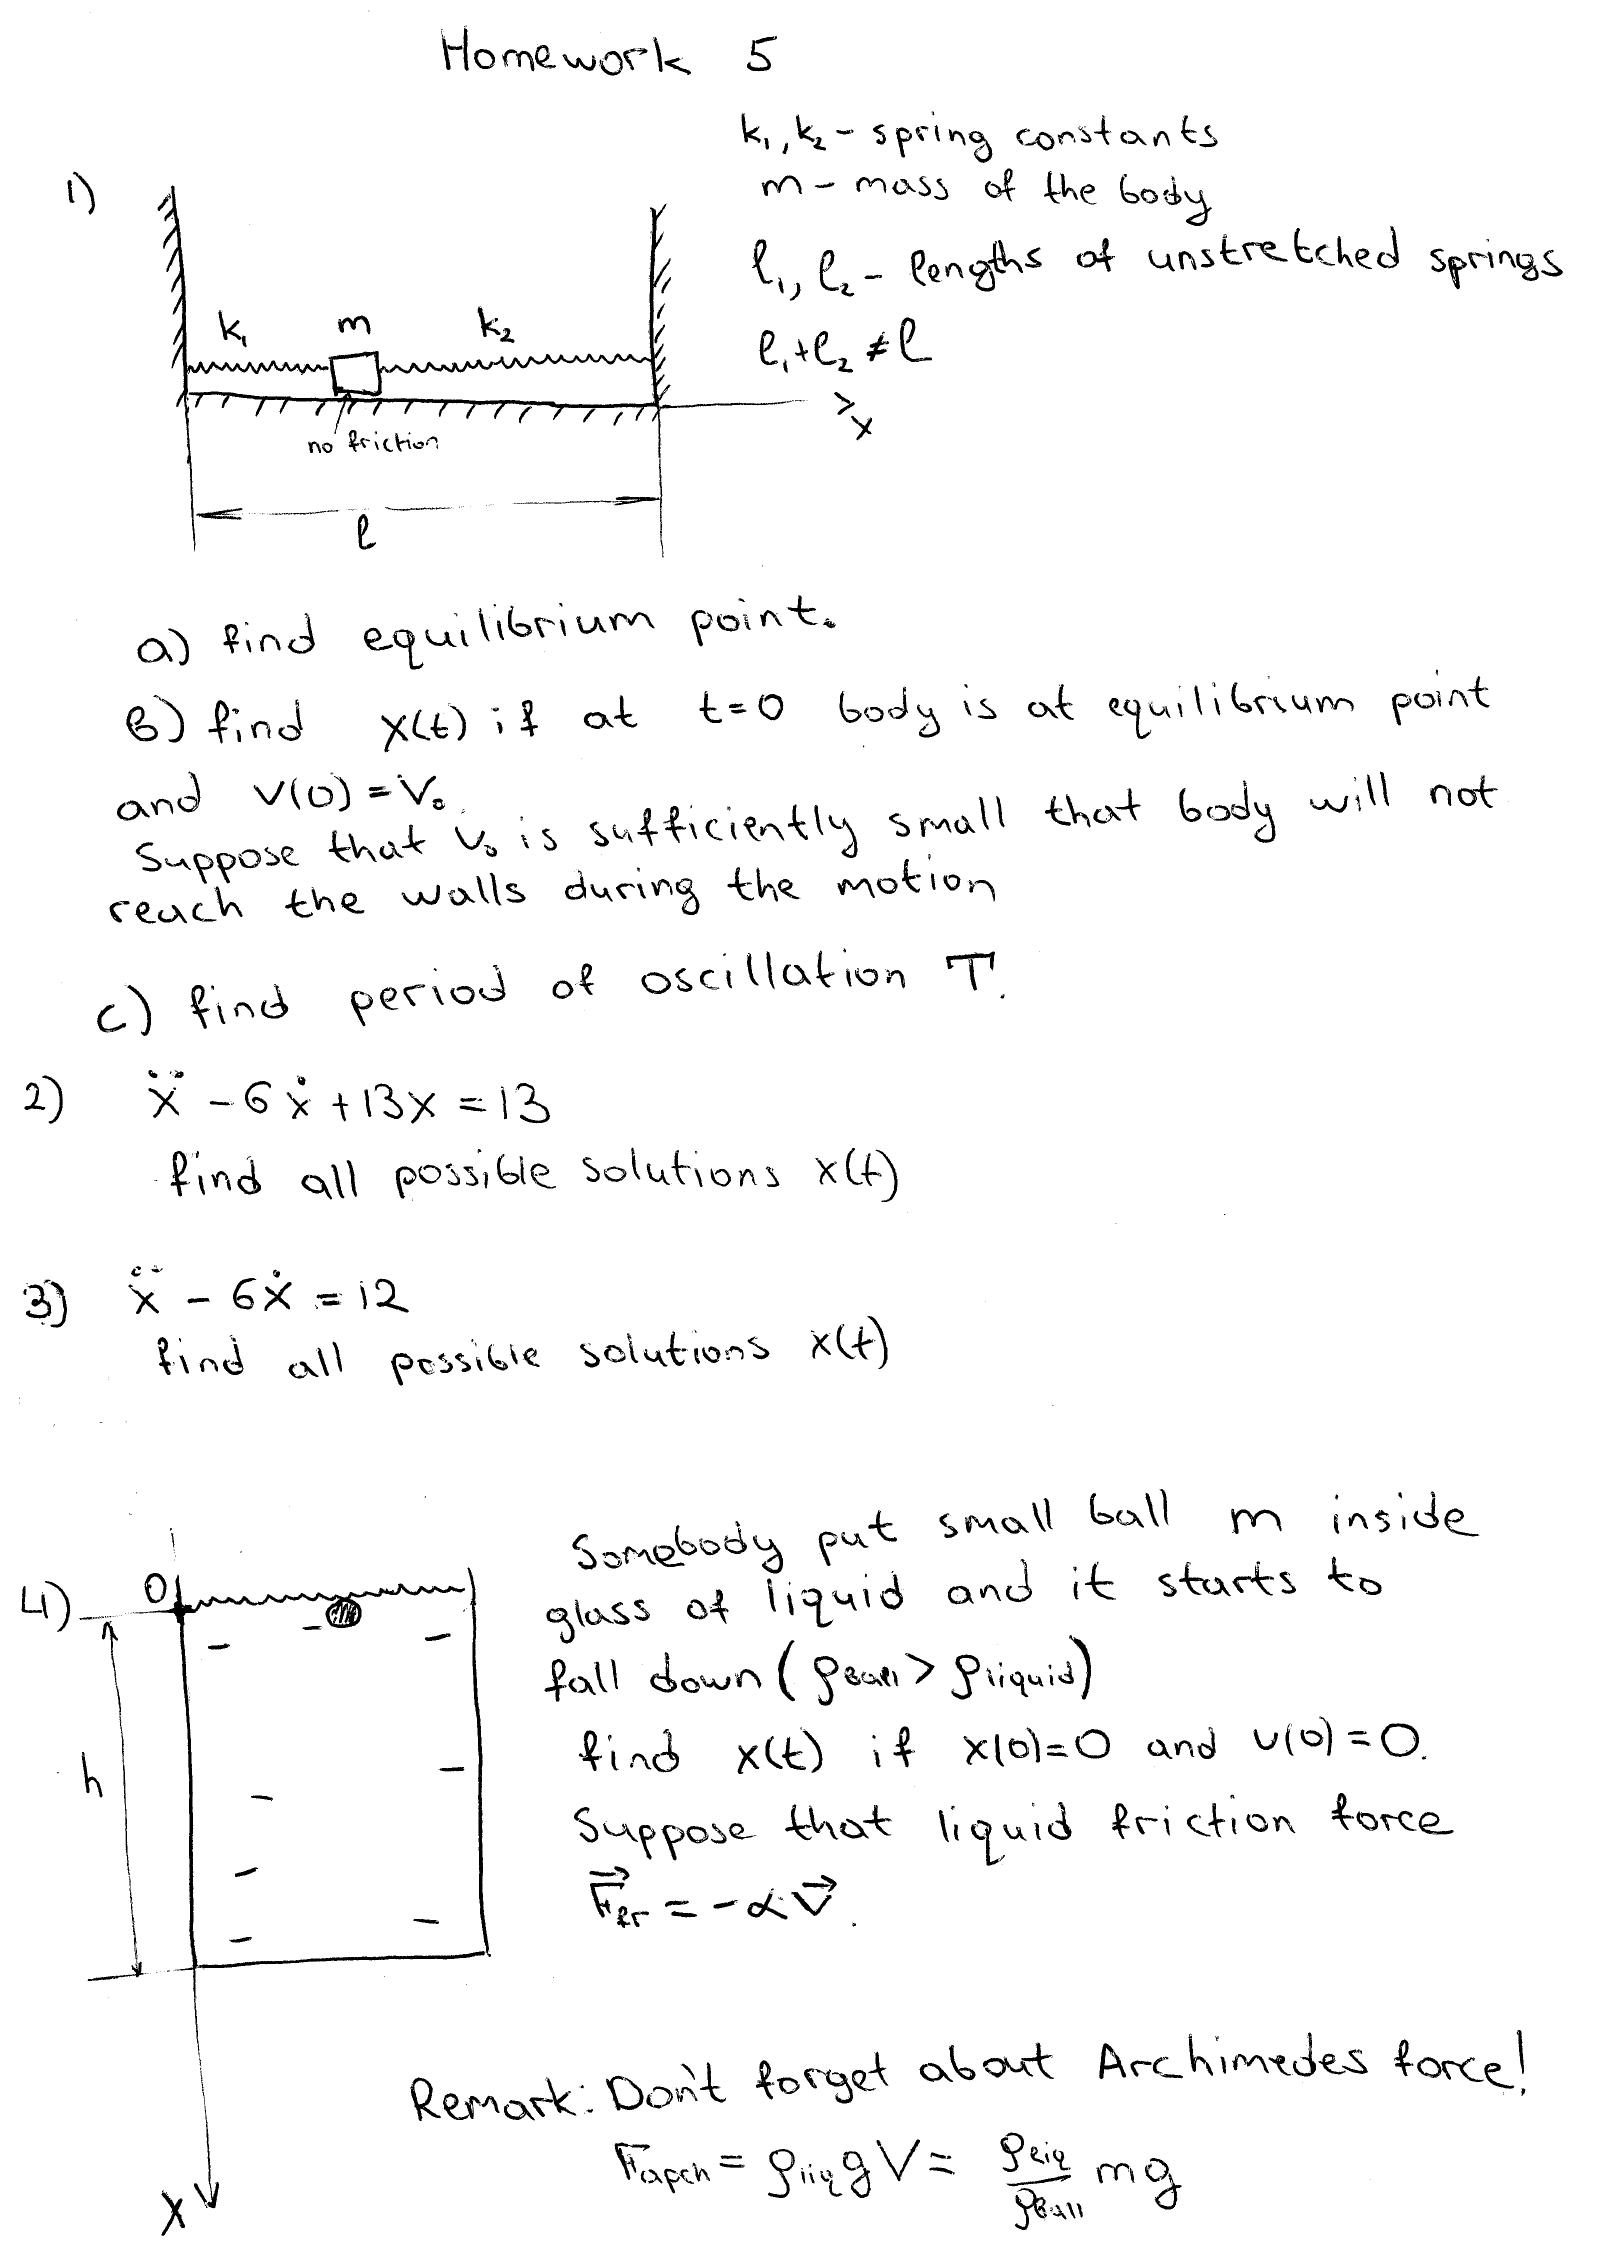 Homework 5
k₁, k₂ - spring constants
m - mass of the body
1)
l₁, l₂ - lengths of unstretched springs
k₁ m k₂
l₁+l₂ ≠ l
x
no friction
l
a) find equilibrium point.
b) find x(t) if at t=0 body is at equilibrium point
and v(0) = V₀.
Suppose that V₀ is sufficiently small that body will not
reach the walls during the motion
c) find period of oscillation T.
2) ẍ - 6ẋ + 13x = 13
find all possible solutions x(t)
3) ẍ - 6ẋ = 12
find all possible solutions x(t)
Somebody put small ball m inside
4) 0
glass of liquid and it starts to
fall down (ρball > ρliquid)
h
find x(t) if x(0)=0 and v(0)=0.
Suppose that liquid friction force
F⃗fr = -αV⃗.
Remark: Don't forget about Archimedes force!
Farch = ρliq g V = ρliq/ρball mg
x